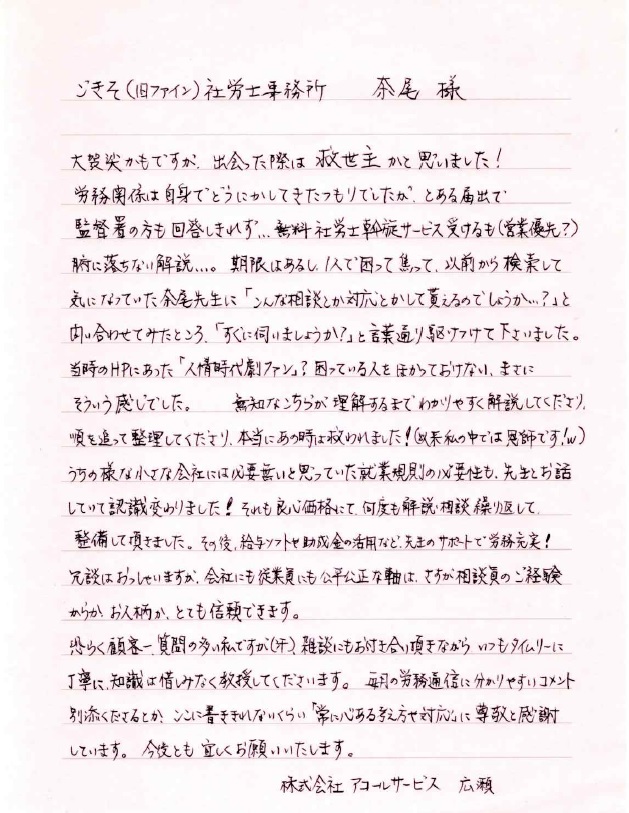 ごきそ(旧ファイン)社労士事務所　奈尾 様
大袈裟かもですが、出会った際は 救世主 かと思いました!
労務関係は自身でどうにかしてきたつもりでしたが、とある届出で
監督署の方も回答しきれず... 無料社労士斡旋サービス受けるも(営業優先?)
腑に落ちない解説...。 期限はあるし、1人で困って焦って、以前から検索して
気になっていた奈尾先生に「こんな相談とか対応とかして貰えるのでしょうか...?」と
問い合わせてみたところ、「すぐに伺いましょうか?」と言葉通り駆けつけて下さいました。
当時のHPにあった「人情時代劇ファン」? 困っている人をほおっておけない、まさに
そういう感じでした。 無知なこちらが理解するまでわかりやすく解説してくださり、
順を追って整理してくださり、本当にあの時は救われました!(以来私の中では恩師です!w)
うちの様な小さな会社には必要無いと思っていた就業規則の必要性も、先生とお話
していて認識変わりました! それも良心価格にて、何度も解説・相談繰り返して、
整備して頂きました。その後、給与ソフトや助成金の活用など、先生のサポートで労務充実!
冗談はおっしゃいますが、会社にも従業員にも公平公正な軸は、さすが相談員のご経験
からか、お人柄か、とても信頼できます。
恐らく顧客一質問の多い私ですが(汗)、雑談にもお付き合い頂きながら いつもタイムリーに
丁寧に、知識は惜しみなく教授してくださいます。 毎月の労務通信に分かりやすいコメント
別添くださるとか、ここに書ききれないくらい「常に心ある考え方や対応」に 尊敬と感謝
しています。 今後とも 宜しくお願いいたします。
株式会社 アコールサービス 広瀬